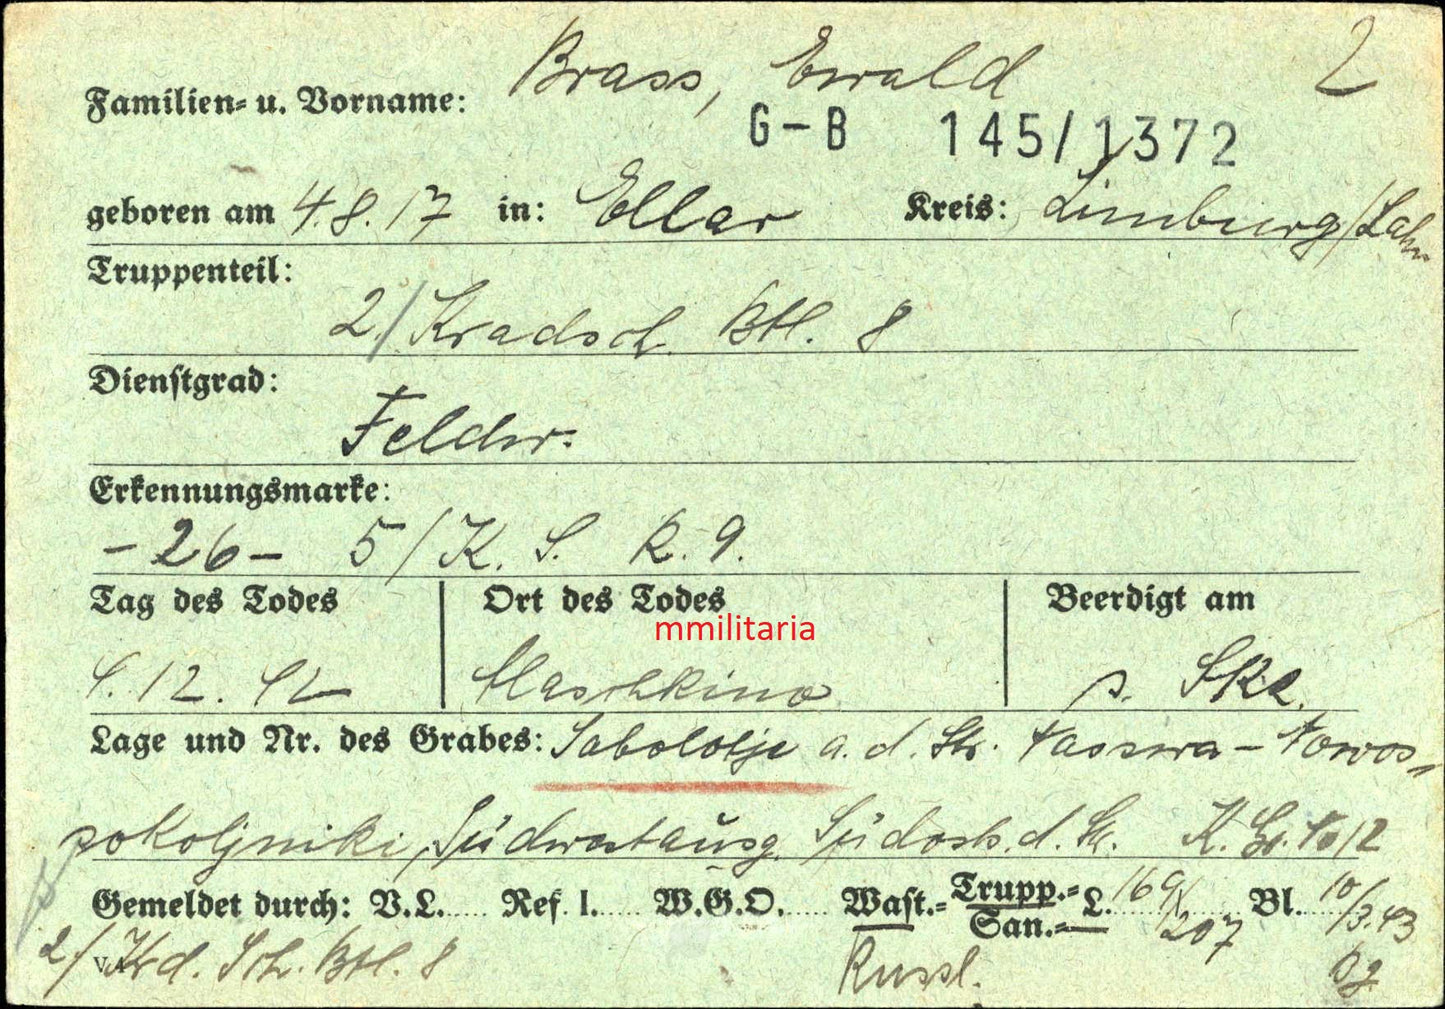 Brass, Ewald 2
Familien- u. Vorname:
G-B 145/1372
geboren am 4.8.17 in: Ellar Kreis: Limburg/Lahn
Truppenteil:
2./Kradsch. Btl. 8
Dienstgrad:
Feldw.
Erkennungsmarke:
-26- 5/K. S. R. 9.
Tag des Todes Ort des Todes Beerdigt am
mmilitaria
9.12.42 Maschkino s. Skz.
Lage und Nr. des Grabes: Sabolotje a. d. Str. - Nowos-
sokoljniki, Südwestausg. Südosts. d. Str. K. Gr. No 12
Gemeldet durch: V.L. Ref. I. W.G.O. Wast.- Trupp.- L. 169/ Bl. 10/3.43
San.- 207
2/Krd. Sch. Btl. 8 Russl.